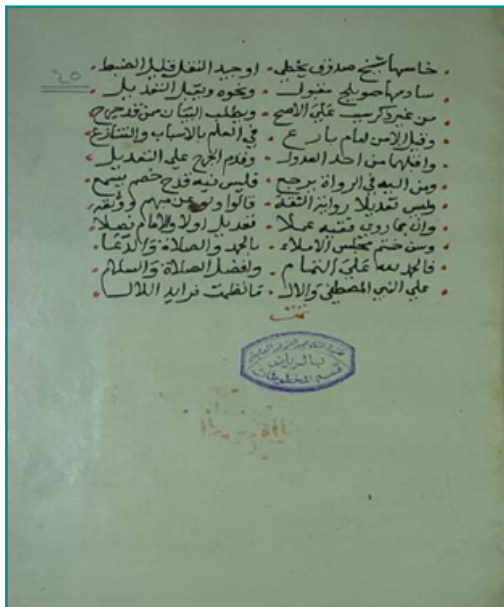 ٤٥
خامسها شيخ صدوق يخطي اوجيد النقل قليل الضبط
سادسها صويلح مقبول ونحوه ويقبل التعديل
من غير ذكر سبب علي الاصح ويطلب البيان من قد جرح
وقيل الا من امام بارع في العلم بالاسباب والتنازع
واقبلهما من احد العدول وقدم الجرح علي التعديل
ومن اليه في الرواة يرجع فليس فيه قدح خصم يسمع
وليس تعديلا رواية الثقة قالوا ولو عن مبهم ووثقه
وان بما روي فقيه عملا تعديل اولا والامام فصلا
وسن ختم مجلس الاملاء بالحمد والصلاة والدعا
فالحمد لله علي التمام وافضل الصلاة والسلام
علي النبي المصطفي والال ما نظمت فرايد اللال
تمت
بالرياض
قسم المخطوطات